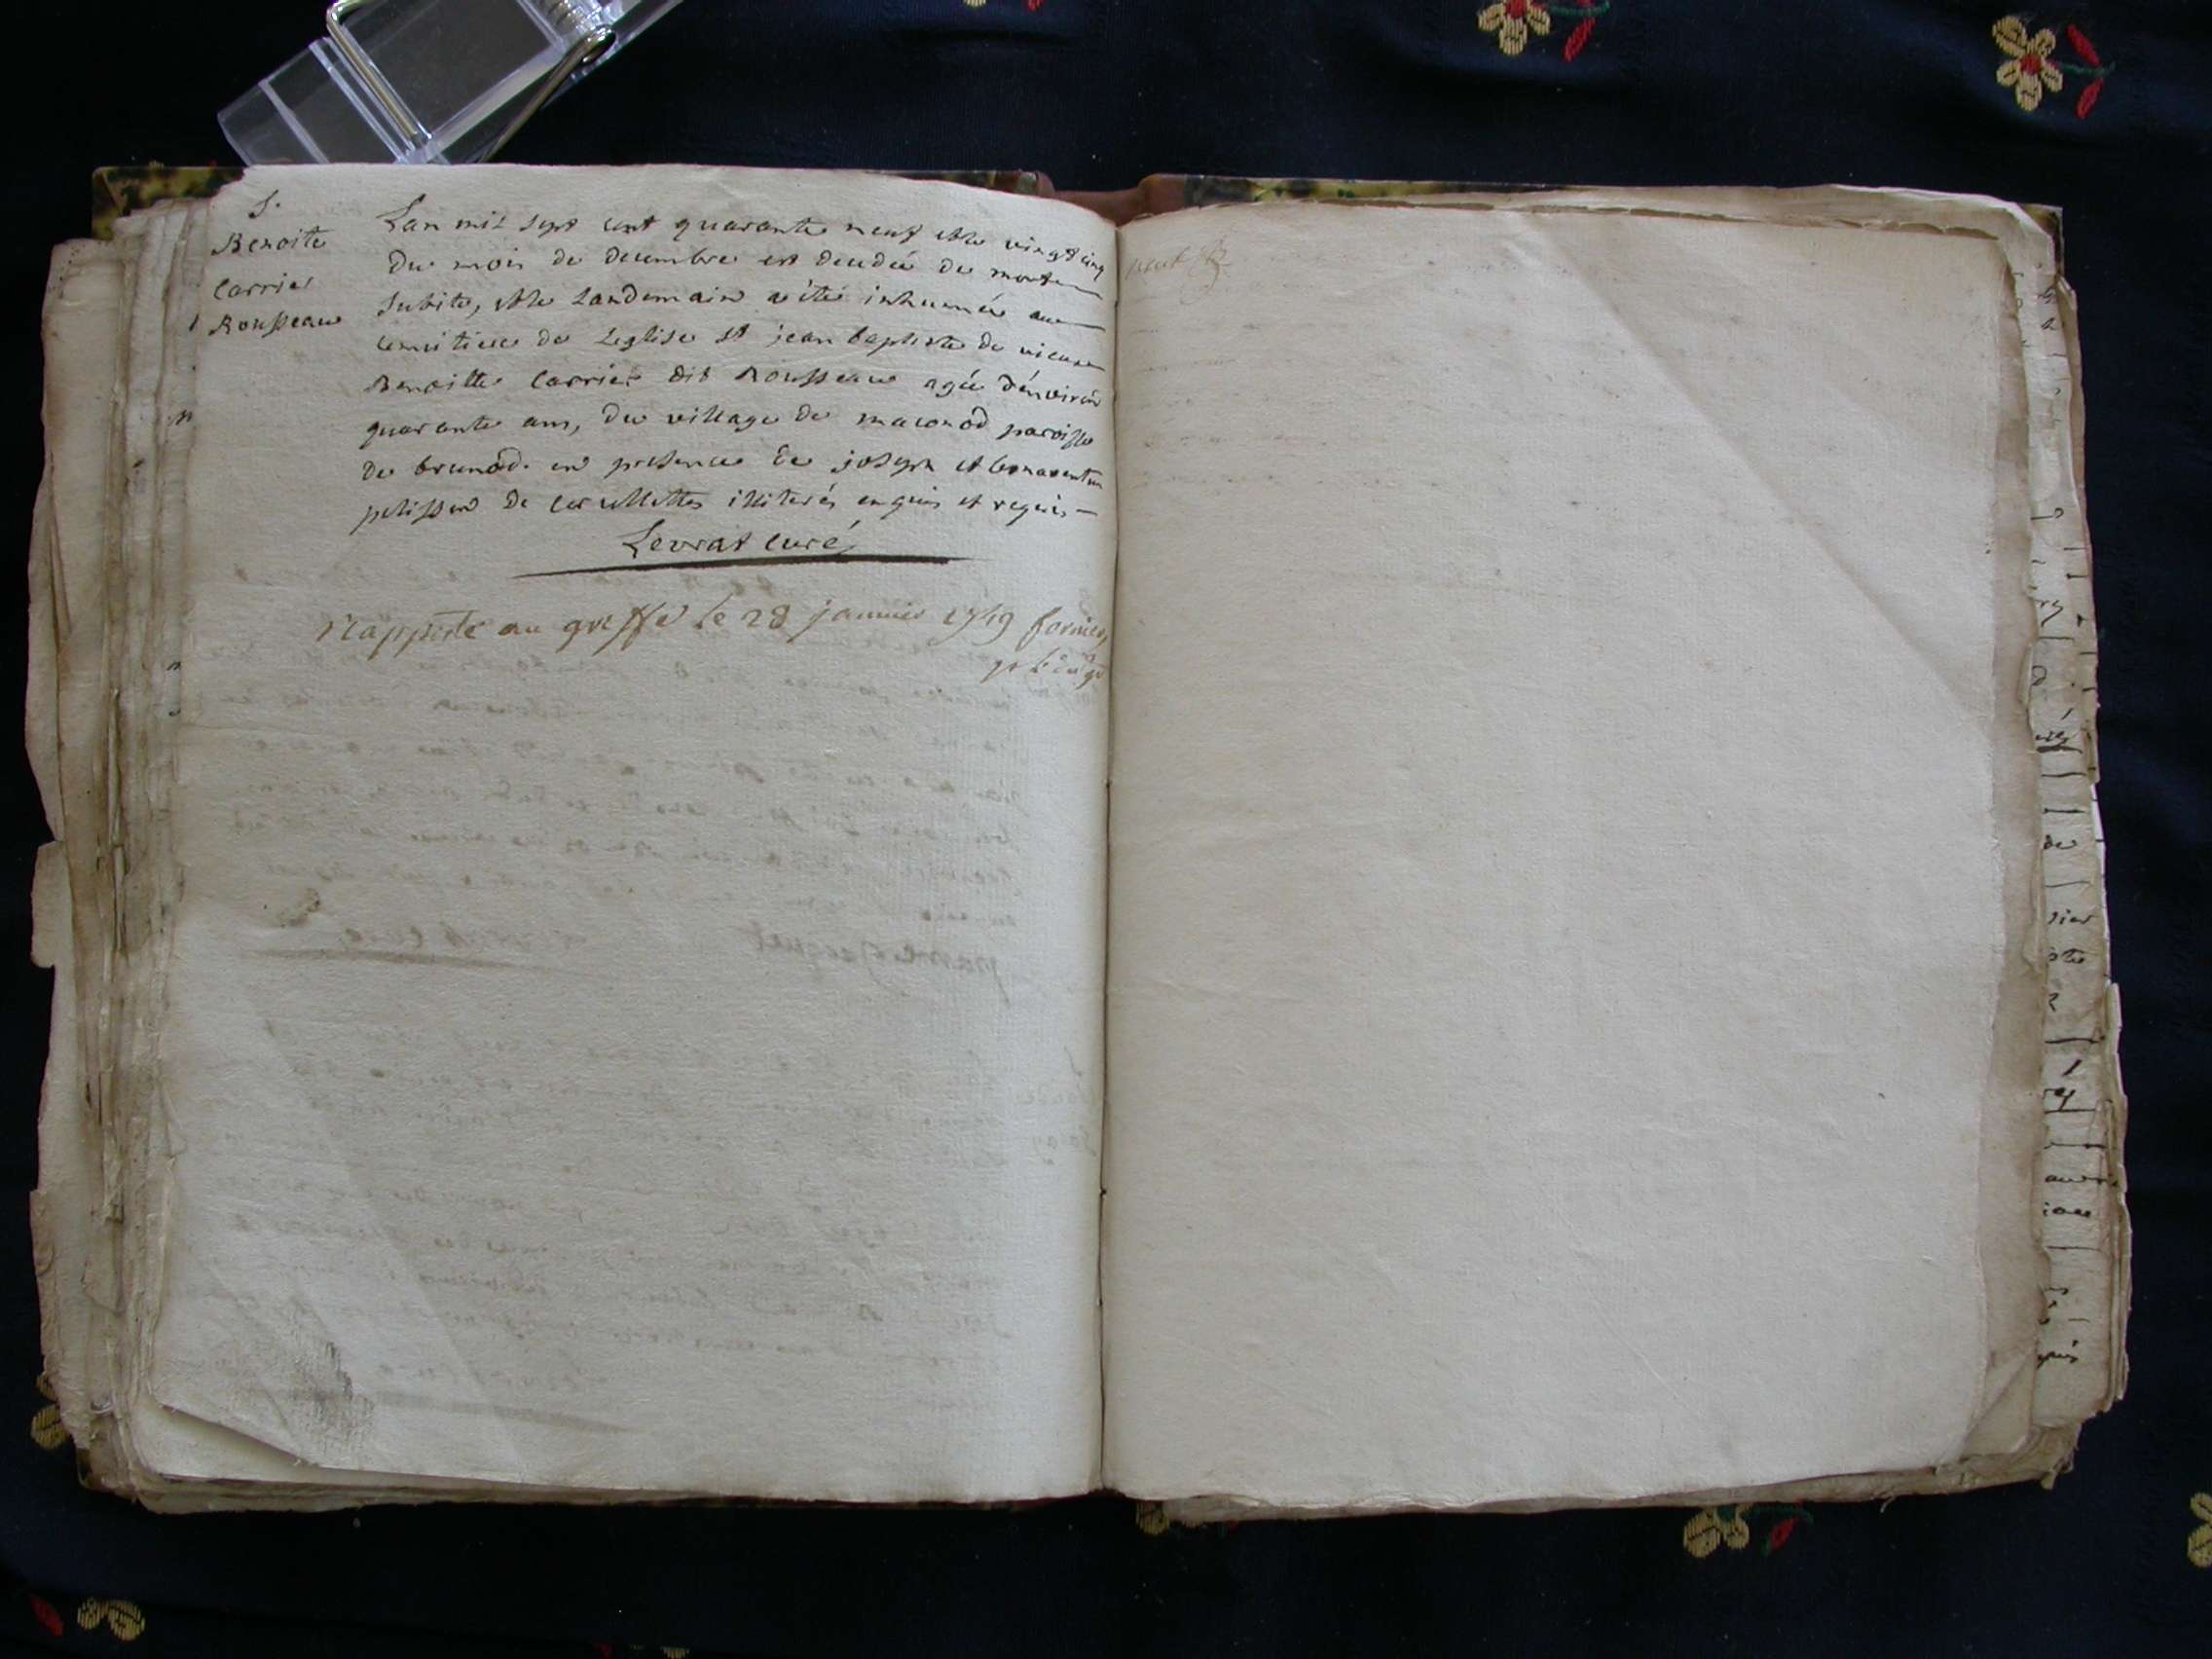 S.
Benoite
Carrier
Rousseau
Lan mil sept cent quarante neuf et le vingt cinq
du mois de decembre est decedée de mort
subite, et le landemain a été inhumée au
cemitiere de Leglise st jean baptiste de vieux
Benoitte Carrier dit Rousseau agée d'énviron
quarante ans, du village de maconod paroisse
de brenod. en presence de joseph et bonaventure
pelisson de illiterés enquis et requis
Levrat curé
Rapporté au greffe le 28 janvier